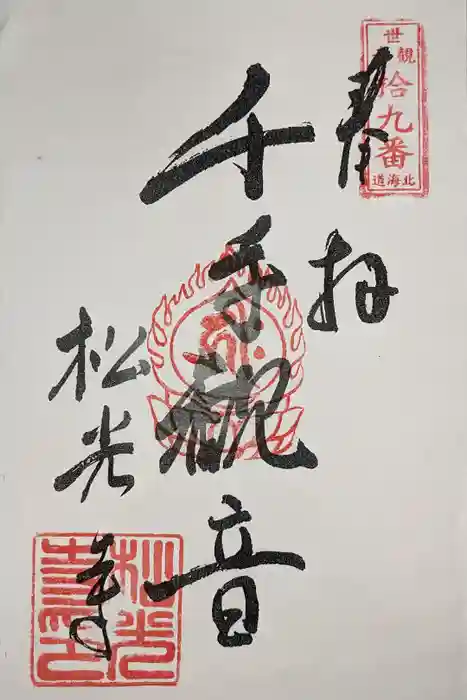 奉拝
北海道
世観
拾九番
千手観音
松光寺